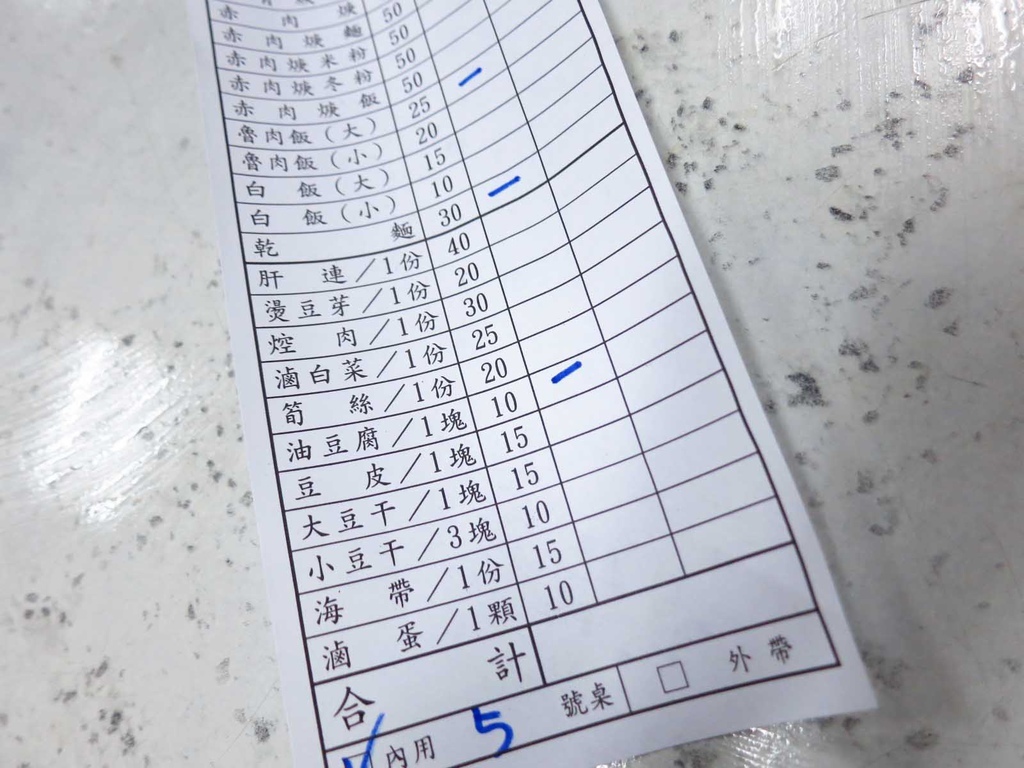 赤肉焿
赤肉焿麵 50
赤肉焿米粉 50
赤肉焿冬粉 50
赤肉焿飯 50
魯肉飯(大) 25 一
魯肉飯(小) 20
白飯(大) 15
白飯(小) 10
乾麵 30 一
肝連/1份 40
燙豆芽/1份 20
焢肉/1份 30
滷白菜/1份 25
筍絲/1份 20
油豆腐/1塊 10 一
豆皮/1塊 15
大豆干/1塊 15
小豆干/3塊 10
海帶/1份 15
滷蛋/1顆 10
合計
✓內用 5 號桌 □ 外帶